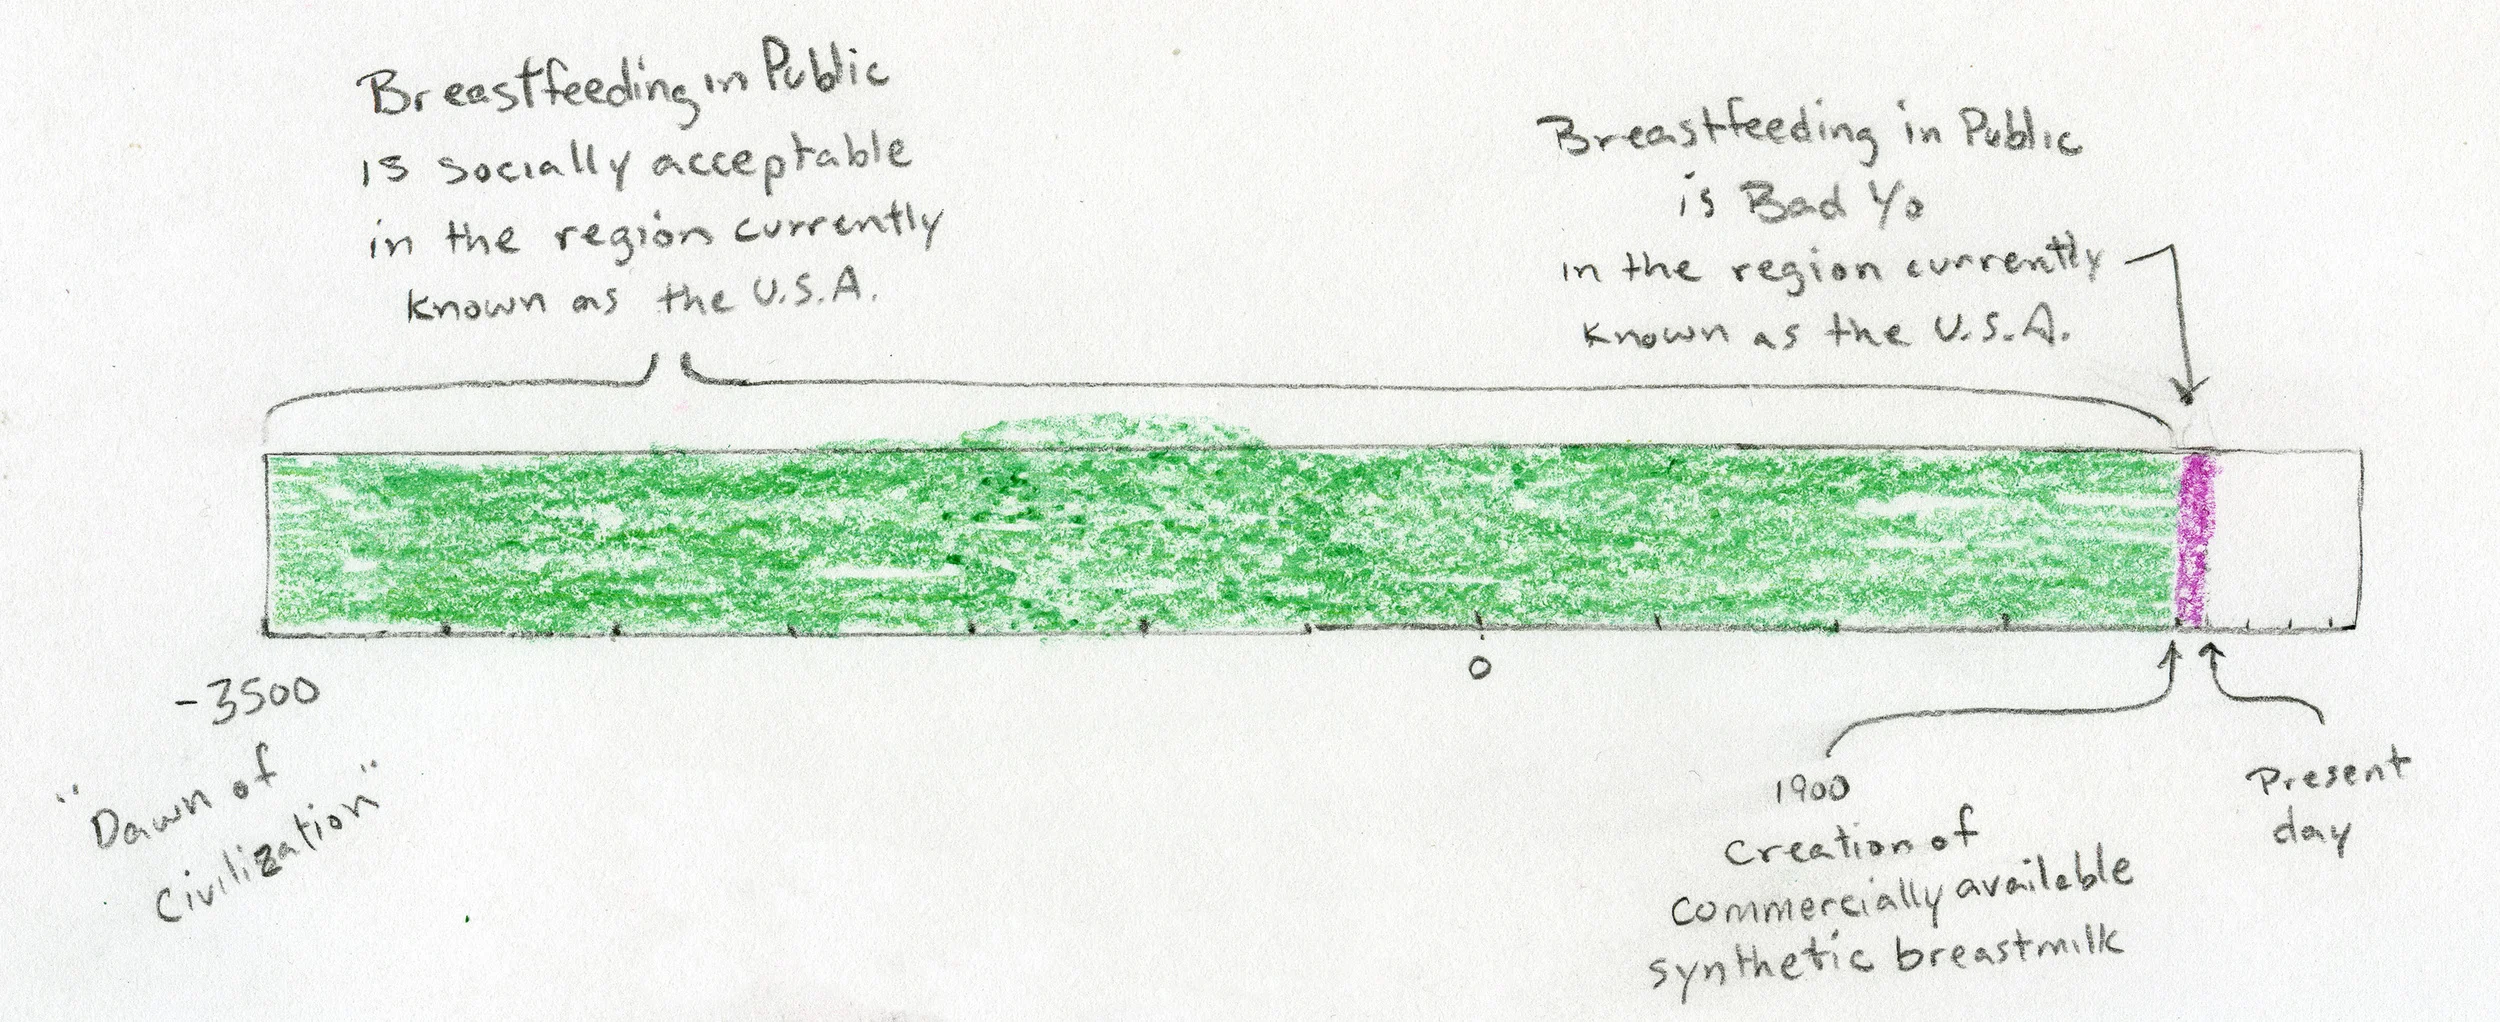 Breastfeeding in Public
is socially acceptable
in the region currently
known as the U.S.A.
Breastfeeding in Public
is Bad Yo
in the region currently
known as the U.S.A.
-3500
"Dawn of
Civilization"
0
1900
Creation of
commercially available
synthetic breastmilk
Present
day